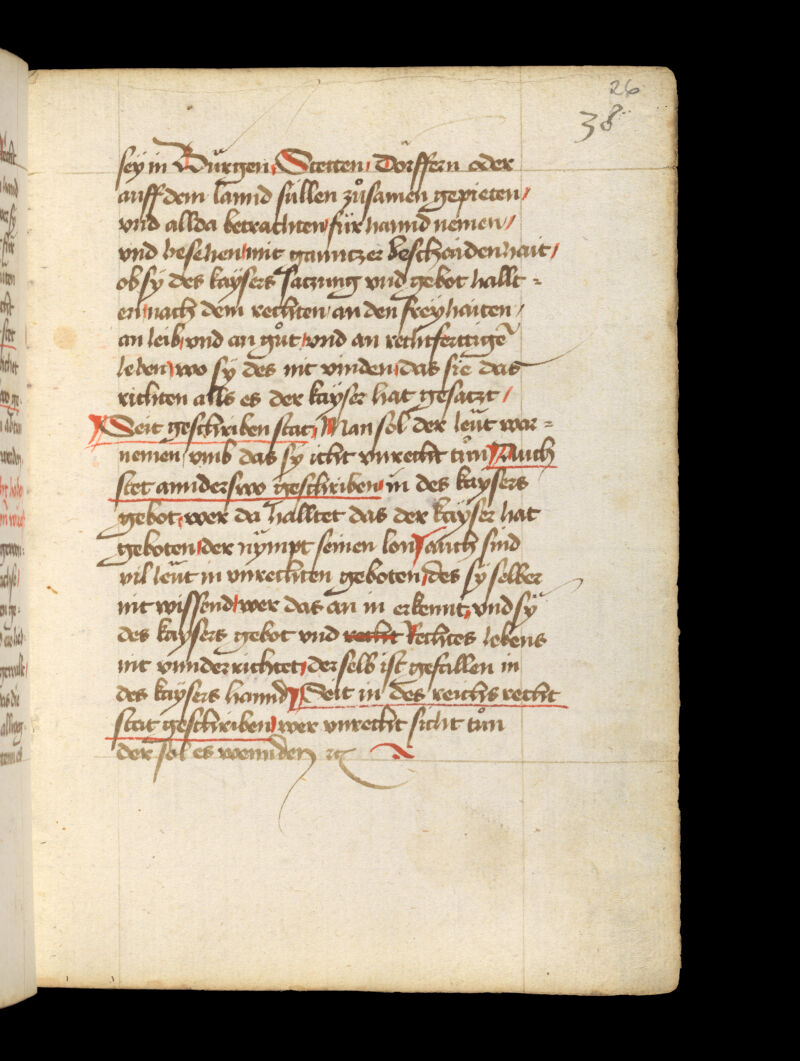 26
38
sey in Bürgen, Stetten, Dörffern oder
auff dem lannd süllen zůsamen gepieten /
vnd allda betrachten / für hannd nemen /
vnd besehen / mit ganntzer beschaidenhait /
ob sy des kaÿsers satzung vnd gebot hallt =
en / nach dem rechten / an den freyhaiten /
an leib / vnd an gůt / vnd an rechtferttigē
leben / wo sy des nit vinden / das sie das
richten alls es der kayser hat gesatzt /
Seit geschriben stat / Man sol der leüt war =
nemen vmb das sy icht vnrecht tůn / Auch
stet annderswo geschriben / in des kaysers
gebot / wer da halltet das der kayser hat
geboten / der nÿmpt seinen lon / auch sind
vil leüt in vnrechten geboten / des sy selber
nit wissend / wer das an in erkennt, vnd sÿ
des kaysers gebot vnd recht Rechtes lebens
nit vnnderrichtet / der selb ist gefallen in
des kaysers hannd / Seit in des reichs recht
stat geschriben / wer vnrecht sicht tůn
der sol es wennden ꝛc